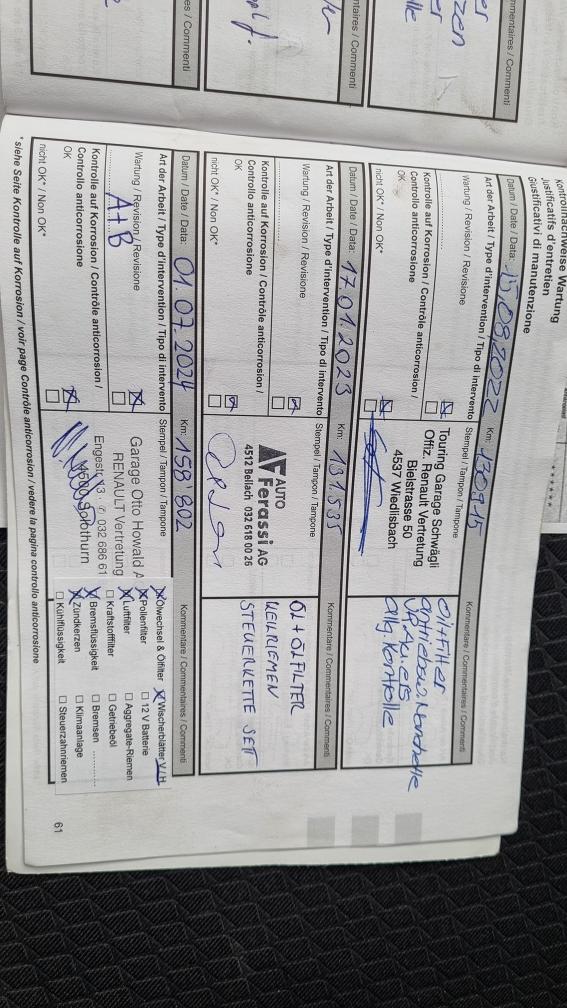 Kontrollnachweise Wartung
Justificatifs d'entretien
Giustificativi di manutenzione
Datum / Date / Data: 15.08.2022
Km: 130915
Art der Arbeit / Type d'intervention / Tipo di intervento
Stempel / Tampon / Tampone
Kommentare / Commentaires / Commenti
Wartung / Revision / Revisione
Kontrolle auf Korrosion / Contrôle anticorrosion /
Controllo anticorrosione
OK
nicht OK* / Non OK*
Touring Garage Schwägli
Offiz. Renault Vertretung
Bielstrasse 50
4537 Wiedlisbach
Datum / Date / Data: 17.01.2023
Km: 131.535
Art der Arbeit / Type d'intervention / Tipo di intervento
Stempel / Tampon / Tampone
Kommentare / Commentaires / Commenti
Wartung / Revision / Revisione
Kontrolle auf Korrosion / Contrôle anticorrosion /
Controllo anticorrosione
OK
nicht OK* / Non OK*
AUTO
Ferassi AG
4512 Bellach 032 618 00 26
ÖL + ÖLFILTER
KEILRIEMEN
STEUERKETTE SET
Datum / Date / Data: 01.07.2024
Km: 158'802
Art der Arbeit / Type d'intervention / Tipo di intervento
Stempel / Tampon / Tampone
Kommentare / Commentaires / Commenti
Wartung / Revision / Revisione
A+B
Kontrolle auf Korrosion / Contrôle anticorrosion /
Controllo anticorrosione
OK
nicht OK* / Non OK*
Garage Otto Howald A
RENAULT Vertretung
032 686 61
4500 Solothurn
Ölwechsel & Ölfilter
Wischerblätter V/H
Pollenfilter
12 V Batterie
Luftfilter
Aggregate-Riemen
Kraftstofffilter
Getriebeöl
Bremsflüssigkeit
Bremsen
Zündkerzen
Klimaanlage
Kühlflüssigkeit
Steuerzahnriemen
*siehe Seite Kontrolle auf Korrosion / voir page Contrôle anticorrosion / vedere la pagina controllo anticorrosione
61